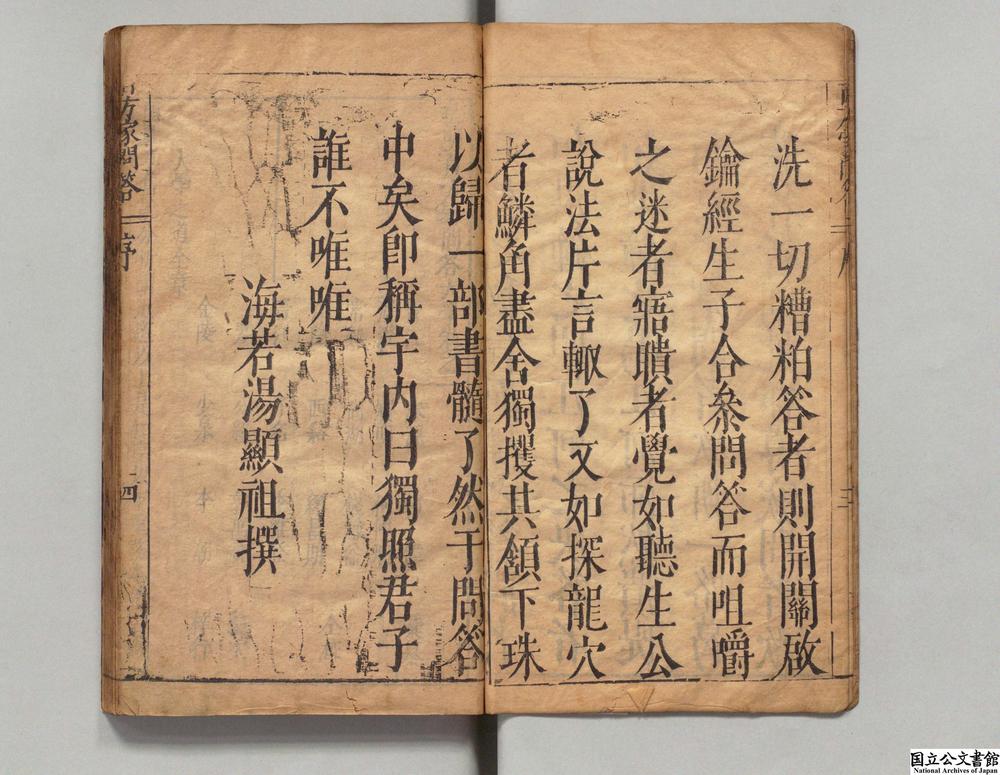 洗一切糟粕答者則開關啟
鑰經生子合叅問答而咀嚼
之迷者寤聵者覺如聽生公
說法片言輙了又如探龍穴
者鱗角盡舍獨攫其頷下珠
以歸一部書髓了然于問答
中矣卽稱宇内曰獨照君子
誰不唯唯
海若湯顯祖撰
方家問答
序
四
国立公文書館
National Archives of Japan